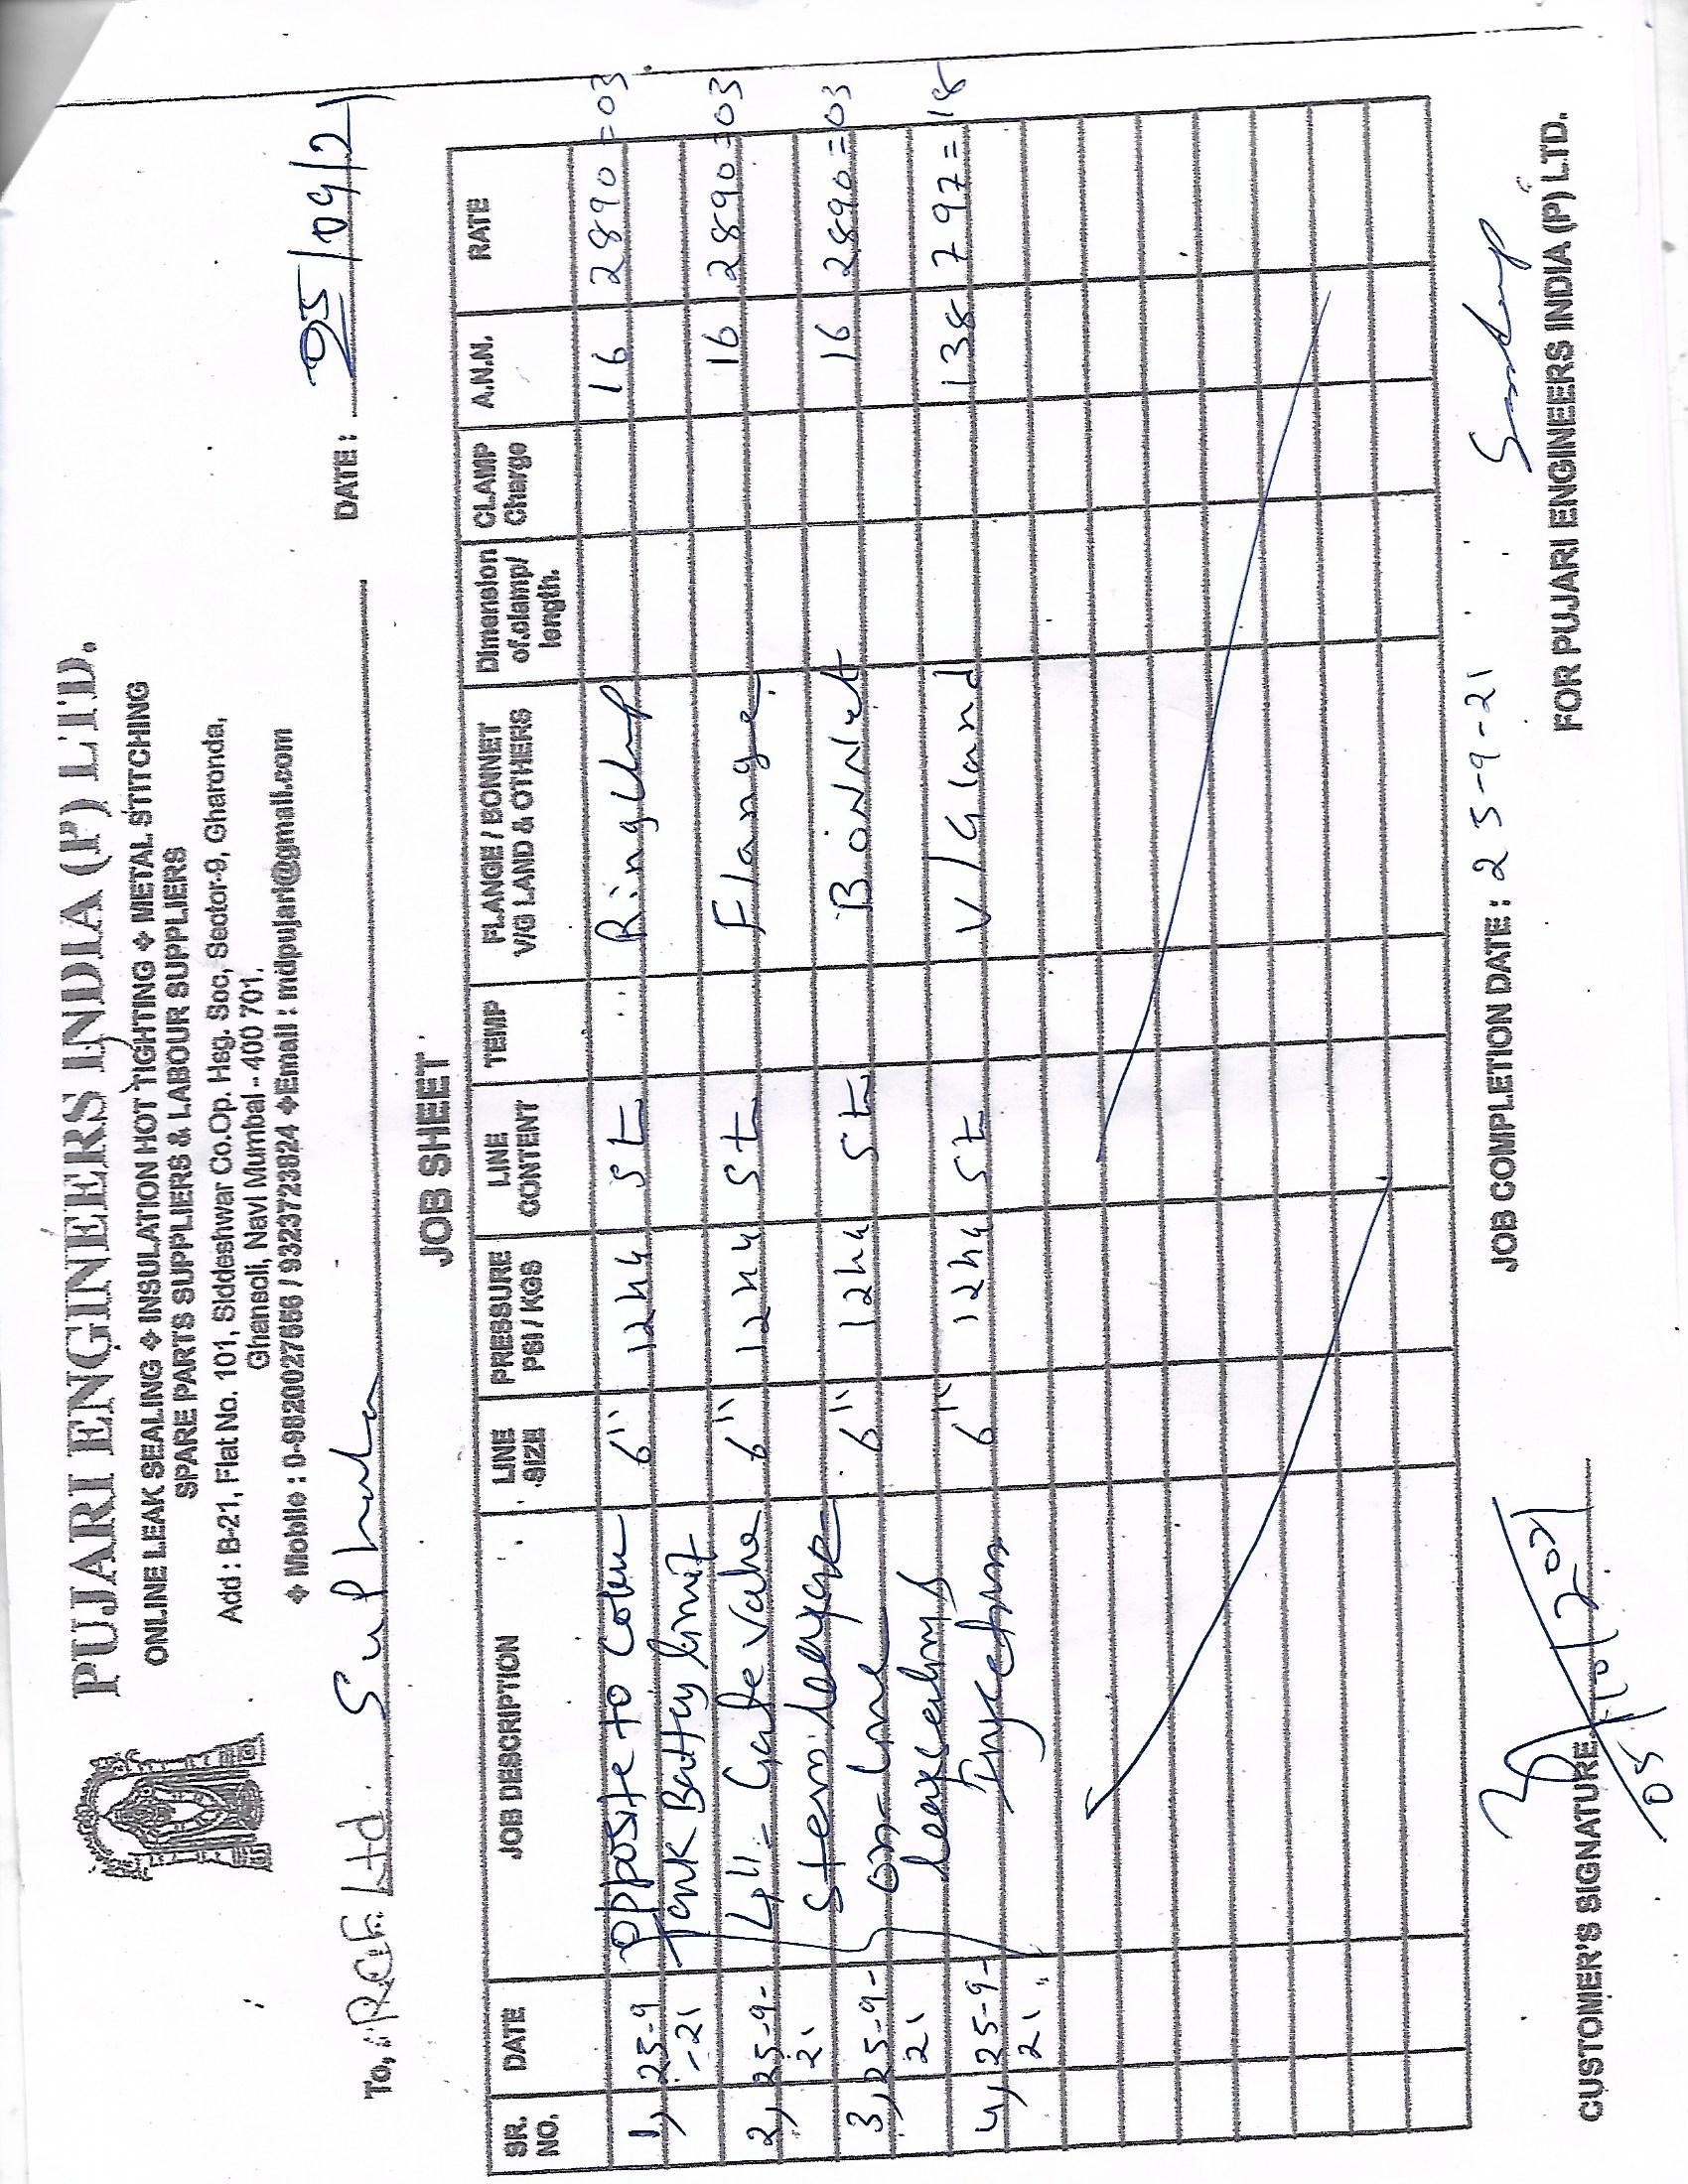 PUJARI ENGINEERS INDIA (P) LTD.
ONLINE LEAK SEALING ❖ INSULATION HOT TIGHTING ❖ METAL STITCHING
SPARE PARTS SUPPLIERS & LABOUR SUPPLIERS
Add : B-21, Flat No. 101, Siddeshwar Co.Op. Hsg. Soc, Sector-9, Gharonda,
Ghansoli, Navi Mumbai - 400 701.
❖ Mobile : 0-9820027656 / 9323723824 ❖Email : mdpujari@gmail.com
To, RCF. Ltd.
DATE :
JOB SHEET
SR. NO. DATE JOB DESCRIPTION LINE SIZE PRESSURE PSI / KGS LINE CONTENT TEMP FLANGE / BONNET V/G LAND & OTHERS Dimension of.clamp/ length. CLAMP Charge A.N.N. RATE
1, 25-9 opposite to 6" St 16 2890=03
-21 Tank Battery limit
2, 25-9- 4"- Gate Valve 6" St Flange 16 2890=03
21 Stem
3, 25-9- on-line 6" St Bonnet 16 2890=03
21
4, 25-9- 6" St V/Gland 138 797=18
21
JOB COMPLETION DATE : 25-9-21
CUSTOMER'S SIGNATURE
05/10/2021
FOR PUJARI ENGINEERS INDIA (P) LTD.